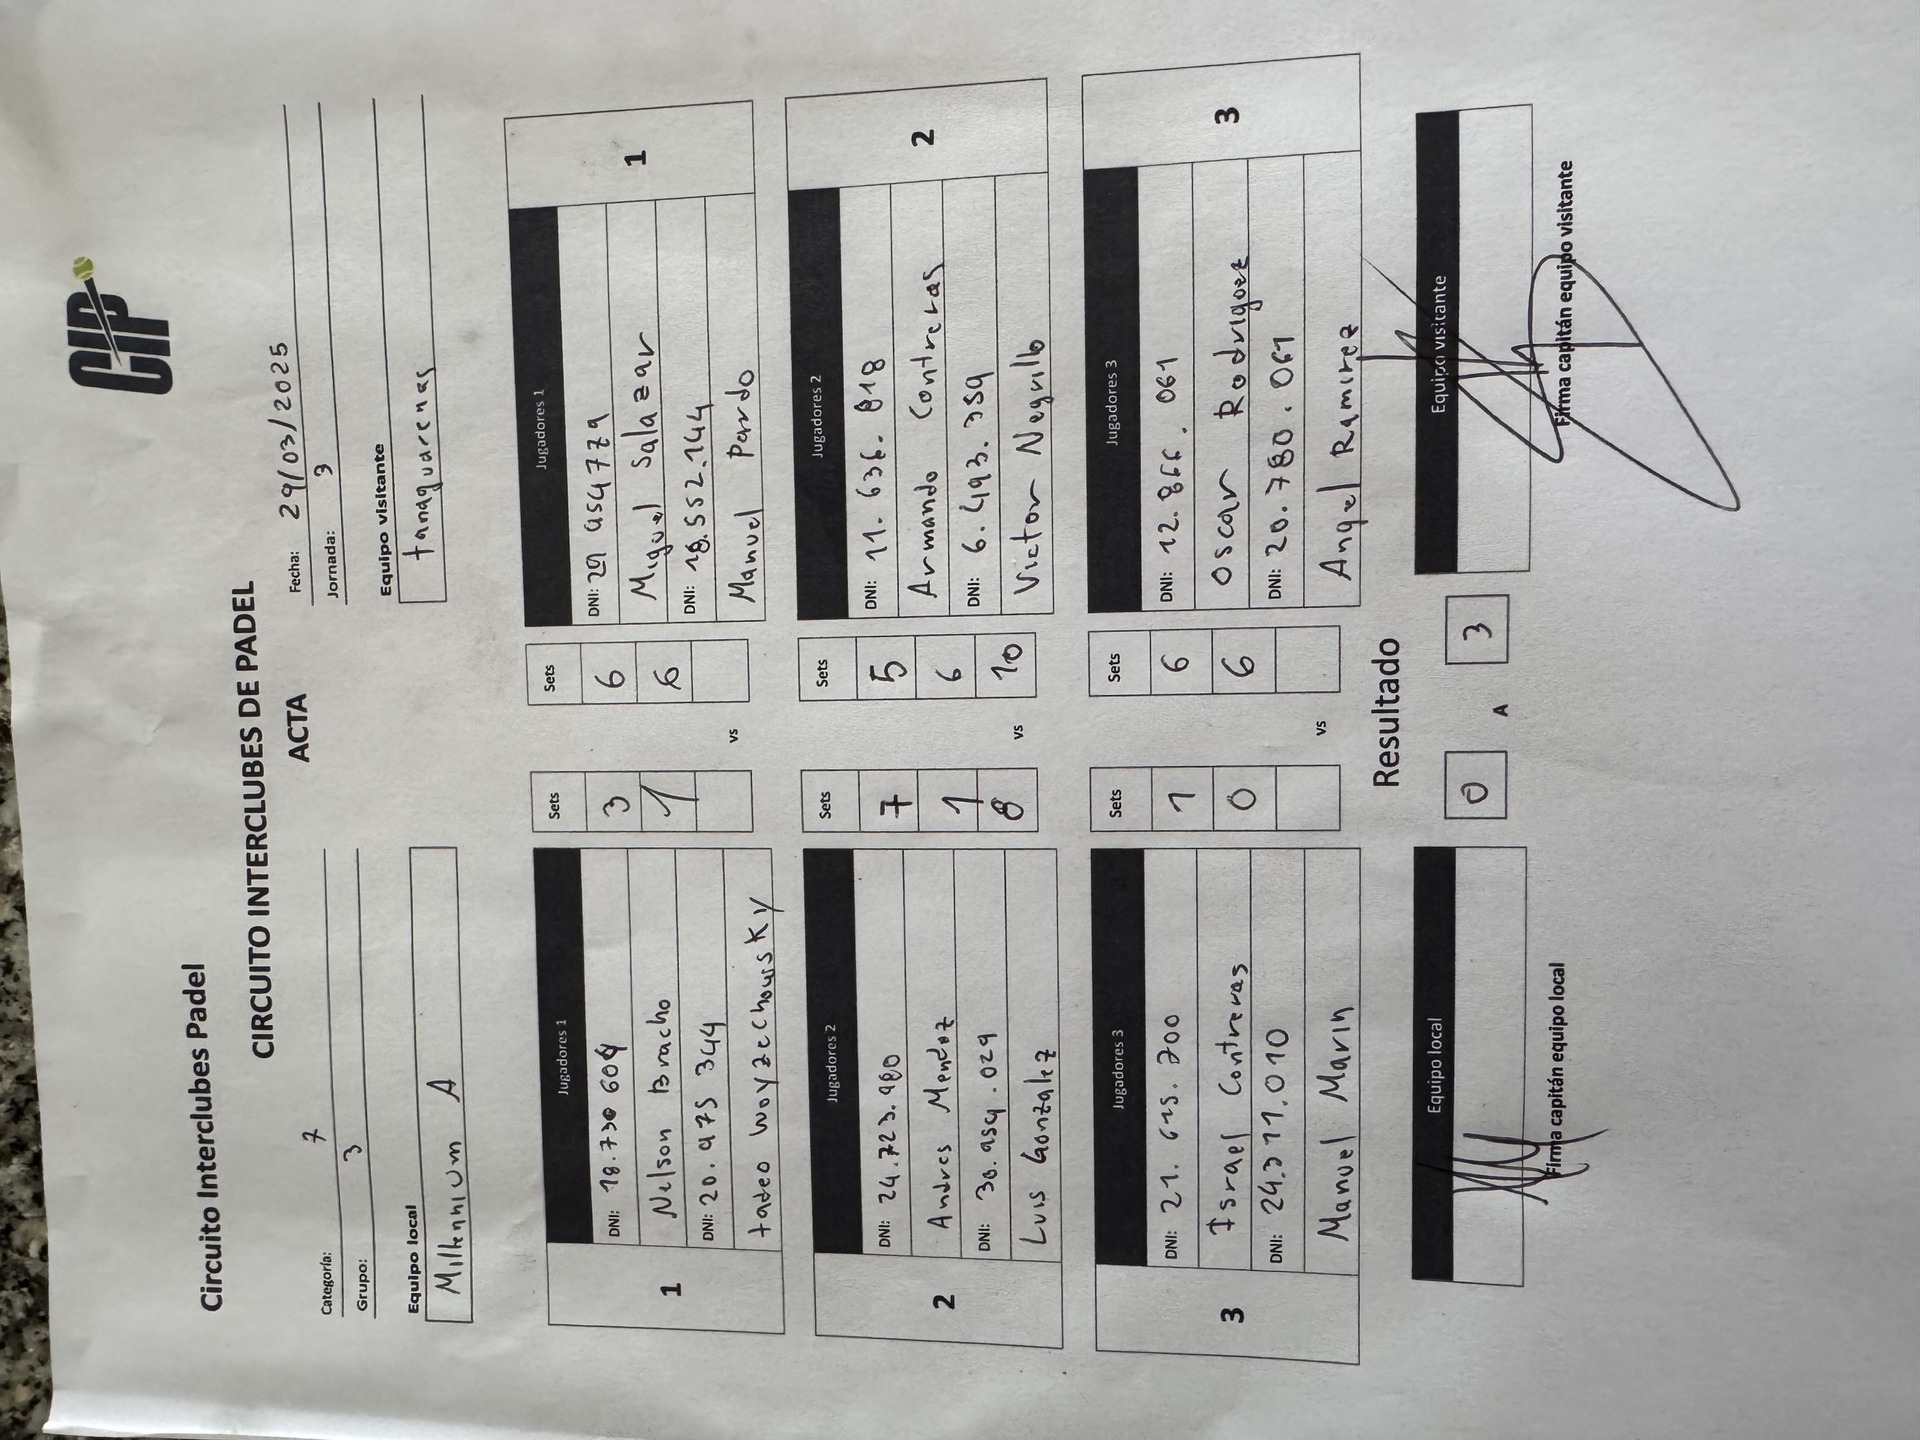 CIP
Circuito Interclubes Padel
CIRCUITO INTERCLUBES DE PADEL
ACTA
Categoría: 7
Grupo: 3
Fecha: 29/03/2025
Jornada: 3
Equipo local
Millennium A
Equipo visitante
tanaguarenas
1
Jugadores 1
DNI: 18.730 604
Nelson Bracho
DNI: 20.975 344
tadeo woyzechowsky
Sets
3
1
vs
Sets
6
6
Jugadores 1
DNI: 29 954779
Miguel Salazar
DNI: 18.552.144
Manuel Pardo
1
2
Jugadores 2
DNI: 24.723.980
Andres Mendoz
DNI: 30.959.029
Luis Gonzalez
Sets
7
1
8
vs
Sets
5
6
10
Jugadores 2
DNI: 11.636.818
Armando Contreras
DNI: 6.493.359
Victor Negrillo
2
3
Jugadores 3
DNI: 21.615.700
Israel Contreras
DNI: 24.311.010
Manuel Marin
Sets
1
0
vs
Sets
6
6
Jugadores 3
DNI: 12.866.061
Oscar Rodriguez
DNI: 20.780.061
Angel Ramirez
3
Resultado
Equipo local
0 A 3
Equipo visitante
Firma capitán equipo local
Firma capitán equipo visitante